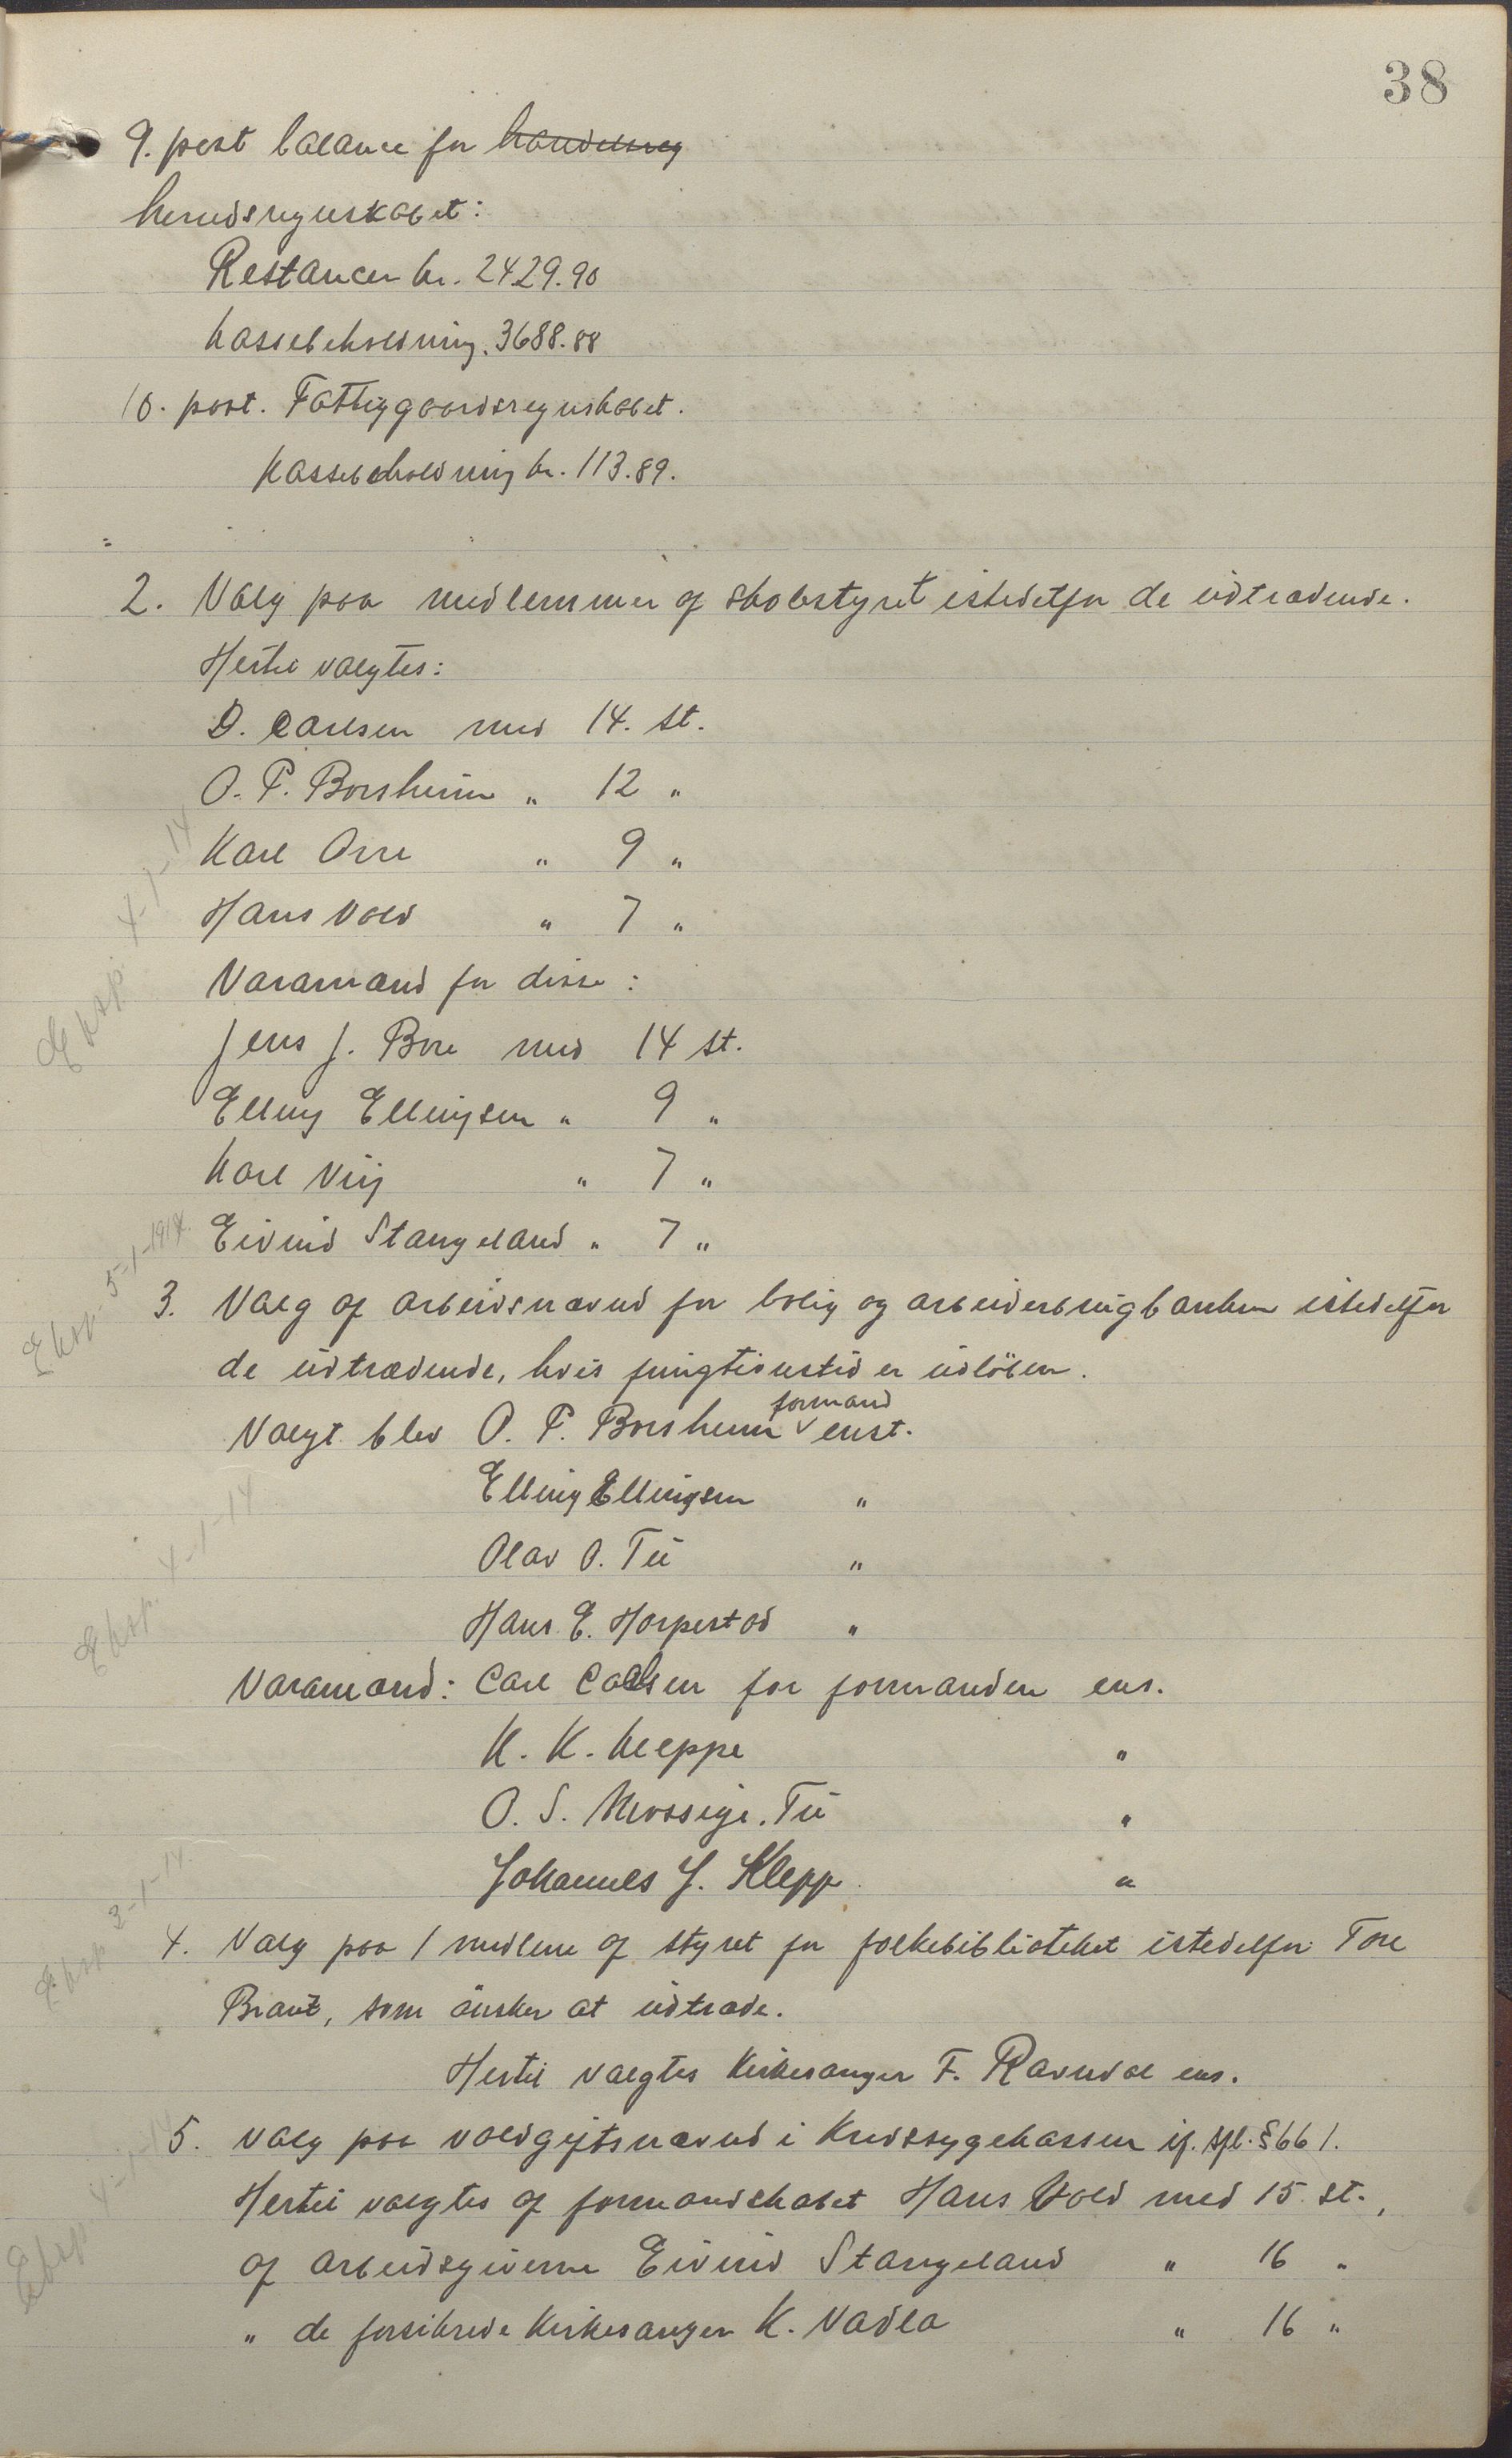 38
9. post balance for handelsreg
herredsregnskabet:
Restancer kr. 2429.90
kassebeholdning. 3688.88
10. post. Fattiggaardsregnskabet.
Kassebeholdning kr. 113.89.
2. Valg paa medlemmer af skolestyret istedetfor de udtrædende.
Hertil valgtes:
D. Carlsen med 14. st.
O. P. Borsheim " 12 "
Karl Orre " 9 "
Hans Vold " 7 "
Varamænd for disse:
Jens J. Bore med 14 st.
Elling Ellingsen " 9 "
Karl Vig " 7 "
Eivind Stangeland " 7 "
3. Valg af arbeidsnævnd for bolig og arbeiderbrugbanken istedetfor
de udtrædende, hvis fungtionstid er udløben.
formand
Valgt blev O. P. Borsheim enst.
Elling Ellingsen "
Olav O. Tu "
Hans E. Horpestad "
Varamænd: Carl Carlsen for formanden ens.
K. K. Kleppe "
O. S. Mossige. Tu "
Johannes J. Klepp "
4. Valg paa 1 medlem af styret for folkebiblioteket istedetfor Tore
Braut, som ønsker at udtræde.
Hertil valgtes Kirkesanger F. Ravndal ens.
5. Valg paa voldgiftsnævnd i Kredssygekassen if. sfl. § 66 1.
Hertil valgtes af formandskabet Hans Vold med 15 st.,
af arbeidsgiverne Eivind Stangeland " 16 "
" de forsikrede Kirkesanger K. Vadla " 16 "
Eksp. 4-1-14
Eksp. 5-1-1914.
Eksp. 4-1-14
Eksp 3-1-14.
Eksp 4-1-14